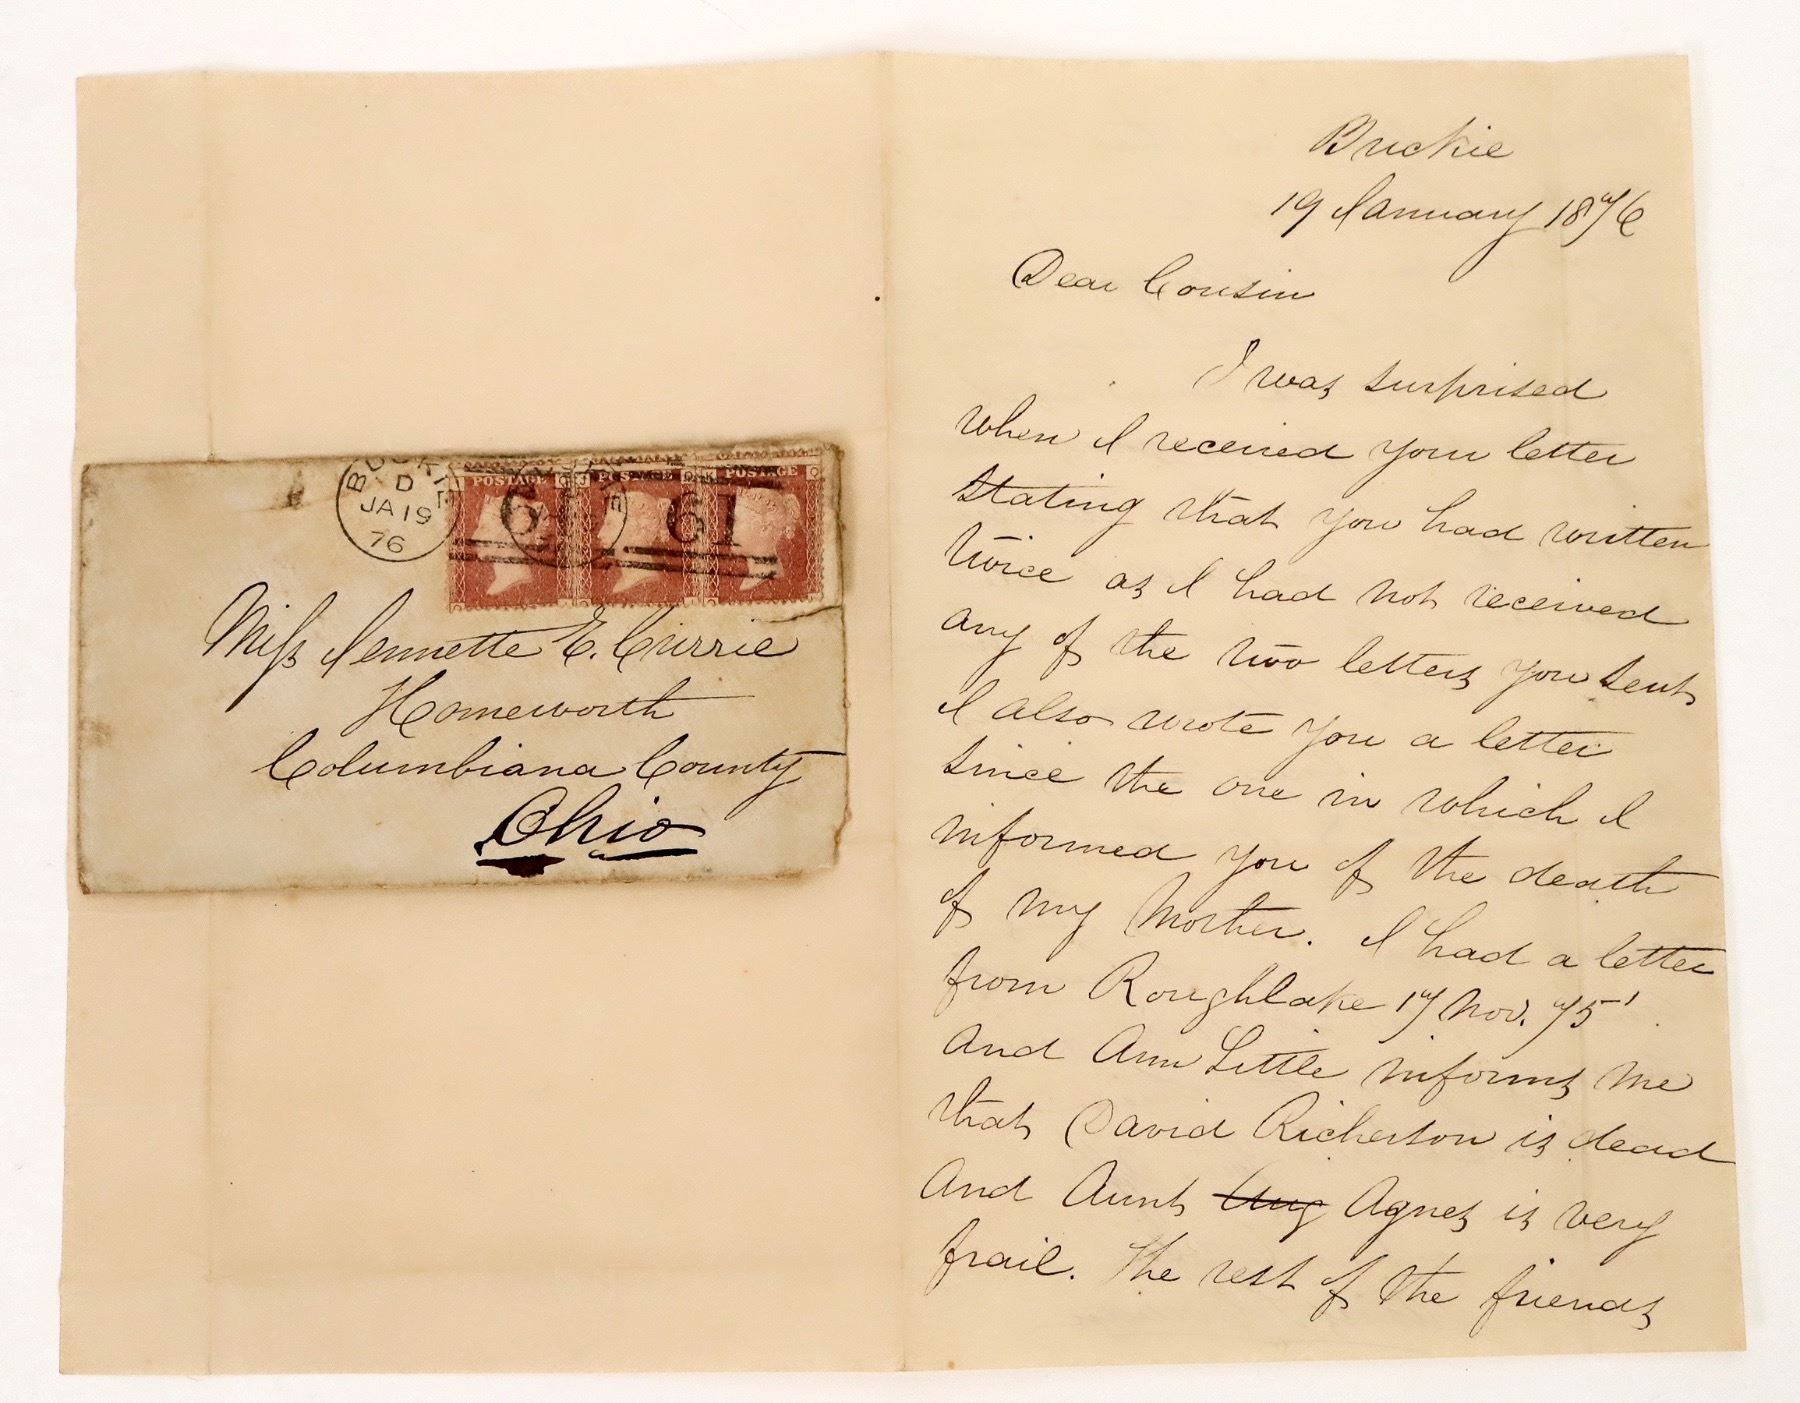 BUCKIE
D
JA 19
76
POSTAGE POSTAGE POSTAGE
61 61
Miss Jennette E. Currie
Homeworth
Columbiana County
Ohio
Buckie
19 January 1876
Dear Cousin
I was surprised
when I received your letter
stating that you had written
twice as I had not received
any of the two letters you sent
I also wrote you a letter
since the one in which I
informed you of the death
of my Mother. I had a letter
from Roughlake 17 Nov. 75'
and Ann Little informs me
that David Richerson is dead
and Aunt Agnes is very
frail. The rest of the friends